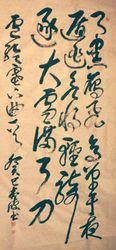 月黑雁飛高單于夜
遁逃欲將輕騎
逐大雪滿弓刀
盧綸塞下曲